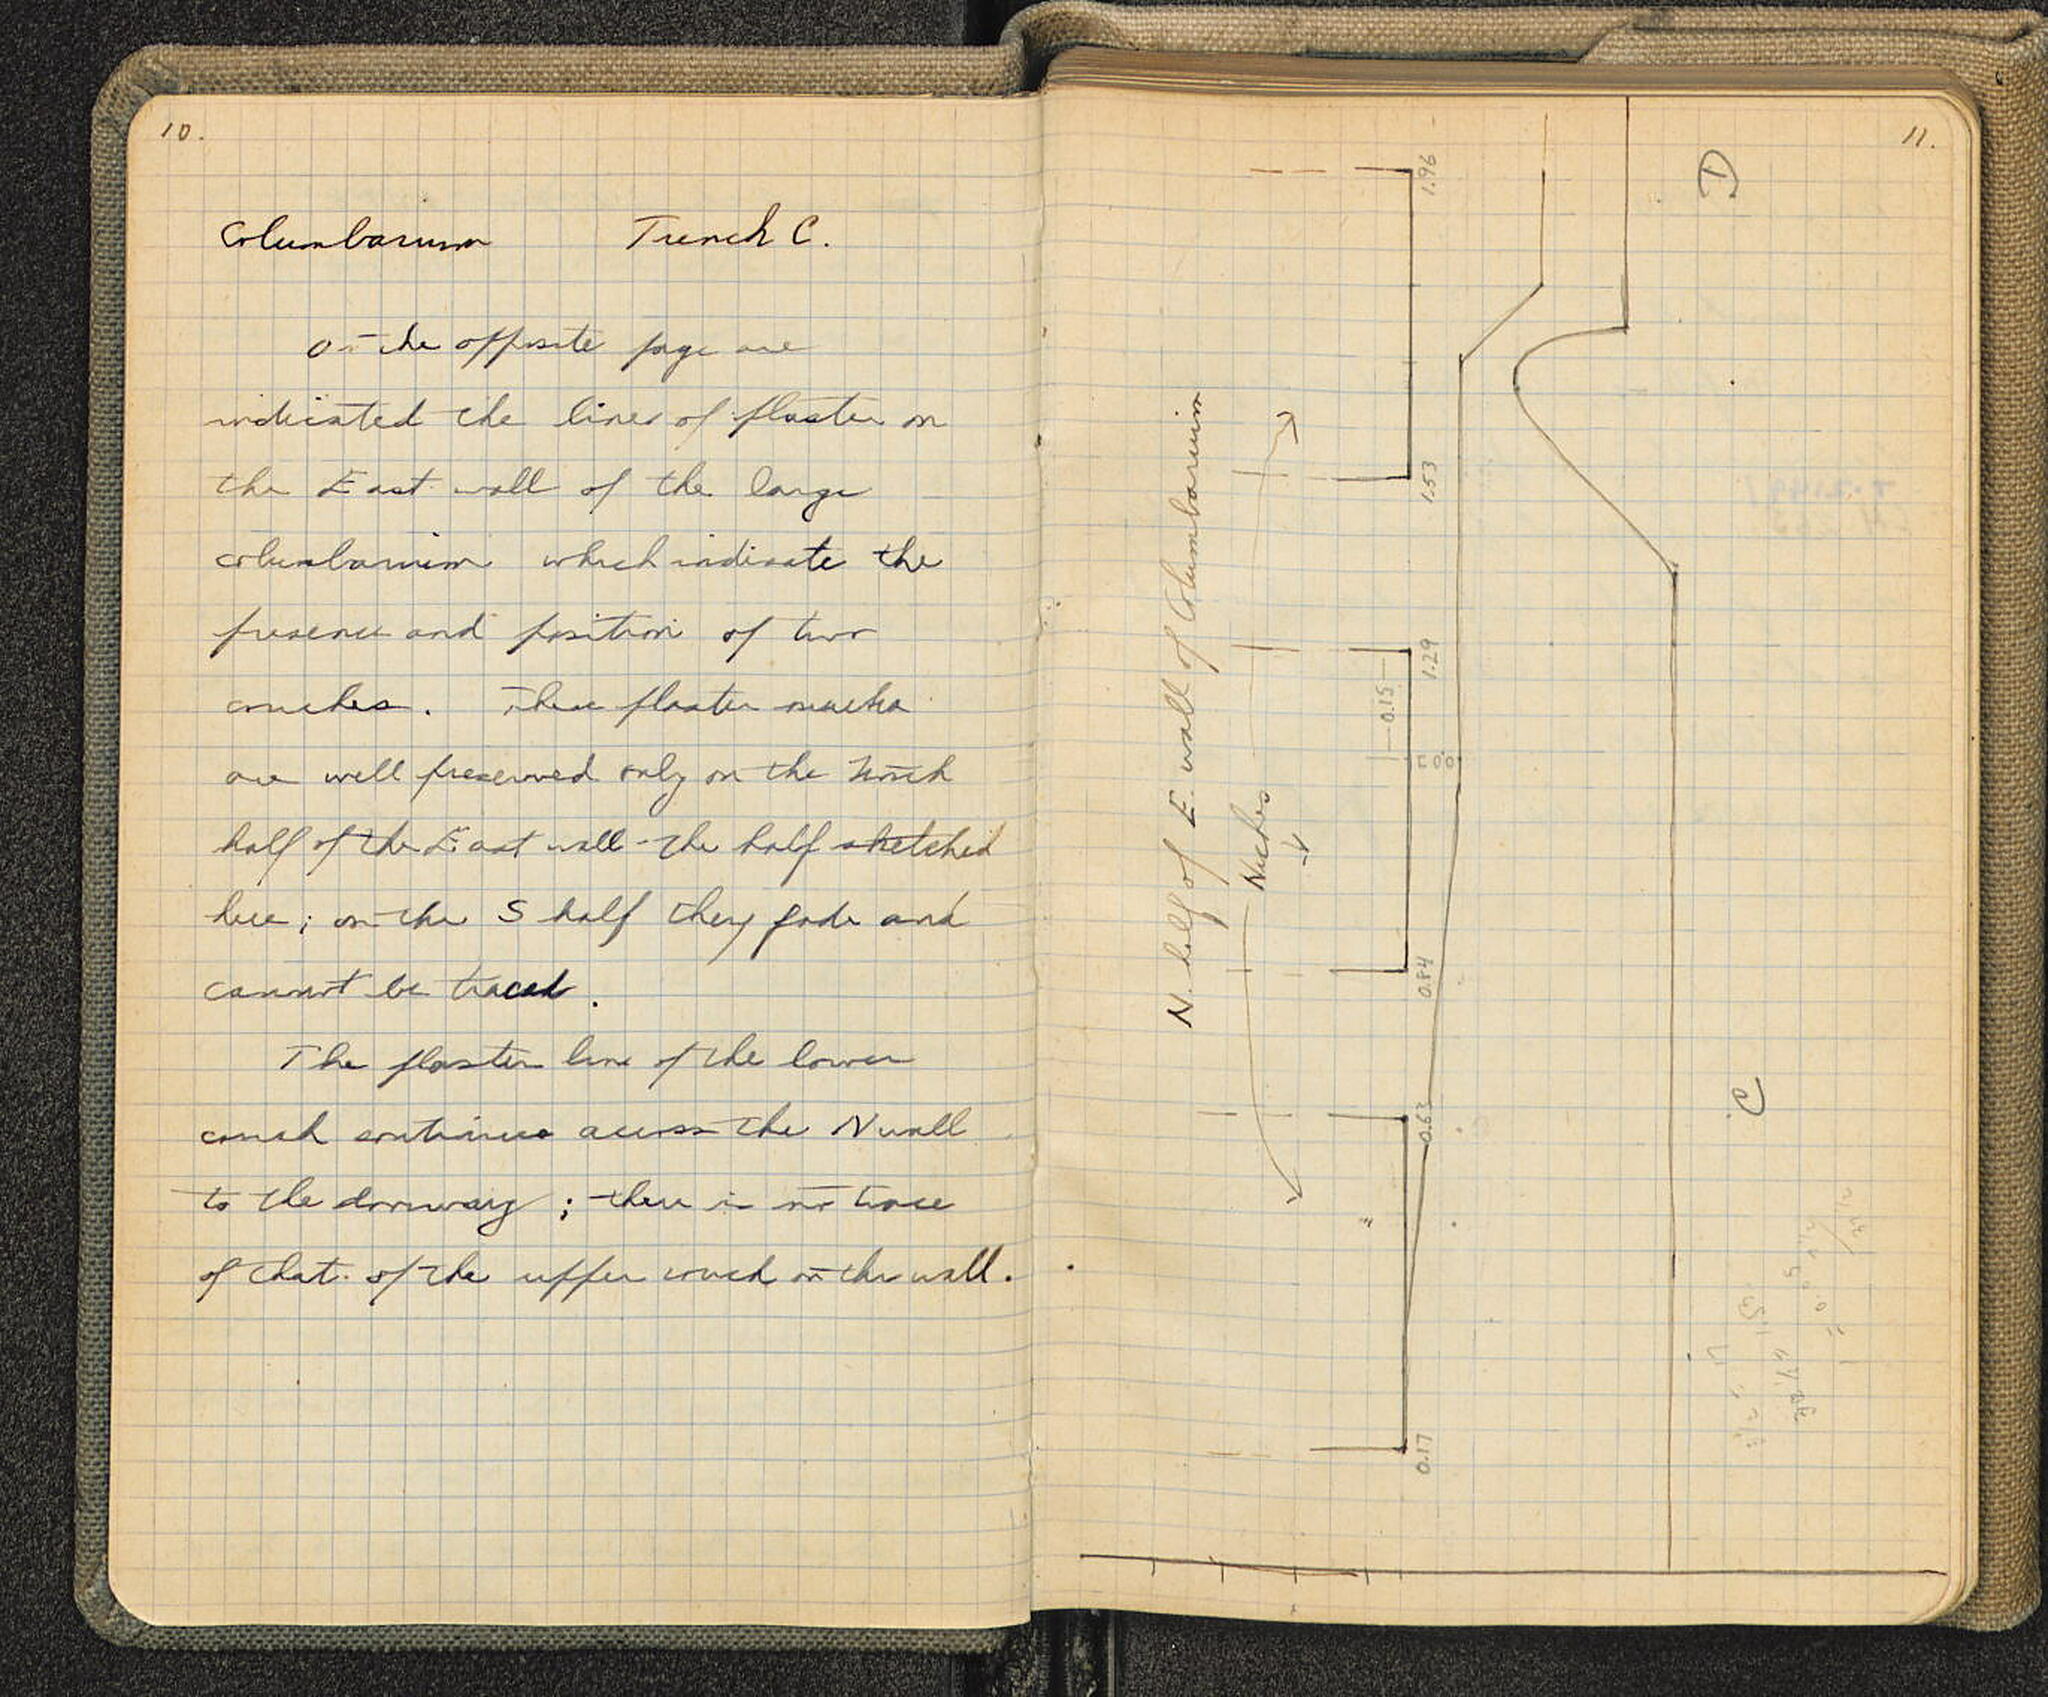 10.
Columbarium Trench C.
On the opposite page are
indicated the lines of plaster on
the East wall of the large
columbarium which indicate the
presence and position of two
couches. These plaster marks
are well preserved only on the North
half of the East wall - the half sketched
here; on the S half they fade and
cannot be traced.
The plaster line of the lower
couch continues across the N wall
to the doorway; there is no trace
of that of the upper couch on the wall.
11.
N. half of E. wall of Columbarium
Niches
1.96
1.53
1.29
0.15
0.84
0.63
0.17
D
C
1.53